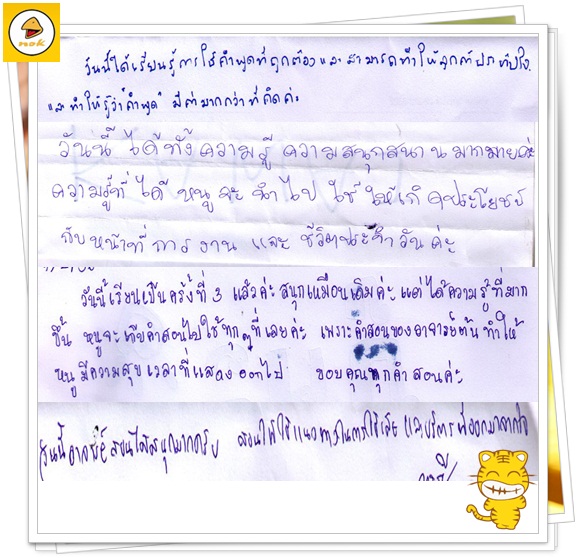 nok
วันนี้ได้เรียนรู้การใช้คำพูดที่ถูกต้อง และสามารถทำให้ลูกค้าประทับใจ
และทำให้รู้ว่า"คำพูด" มีค่ามากกว่าที่คิดค่ะ
วันนี้ ได้ทั้งความรู้ ความสนุกสนานมากมายค่ะ
ความรู้ที่ได้ หนูจะนำไปใช้ให้เกิดประโยชน์
กับหน้าที่การงาน และ ชีวิตประจำวันค่ะ
วันนี้เรียนเป็นครั้งที่ 3 แล้วค่ะ สนุกเหมือนเดิมค่ะ แต่ได้ความรู้ที่มาก
ขึ้น หนูจะเก็บคำสอนไปใช้ทุกๆที่เลยค่ะ เพราะคำสอนของอาจารย์ต้น ทำให้
หนูมีความสุขเวลาที่แสดงออกไป ขอบคุณทุกคำสอนค่ะ
วันนี้อาจารย์สอนได้สนุกมากครับ สอนให้ใช้แนวทางในการใช้เสียงและบริการที่ออกมาจากใจ